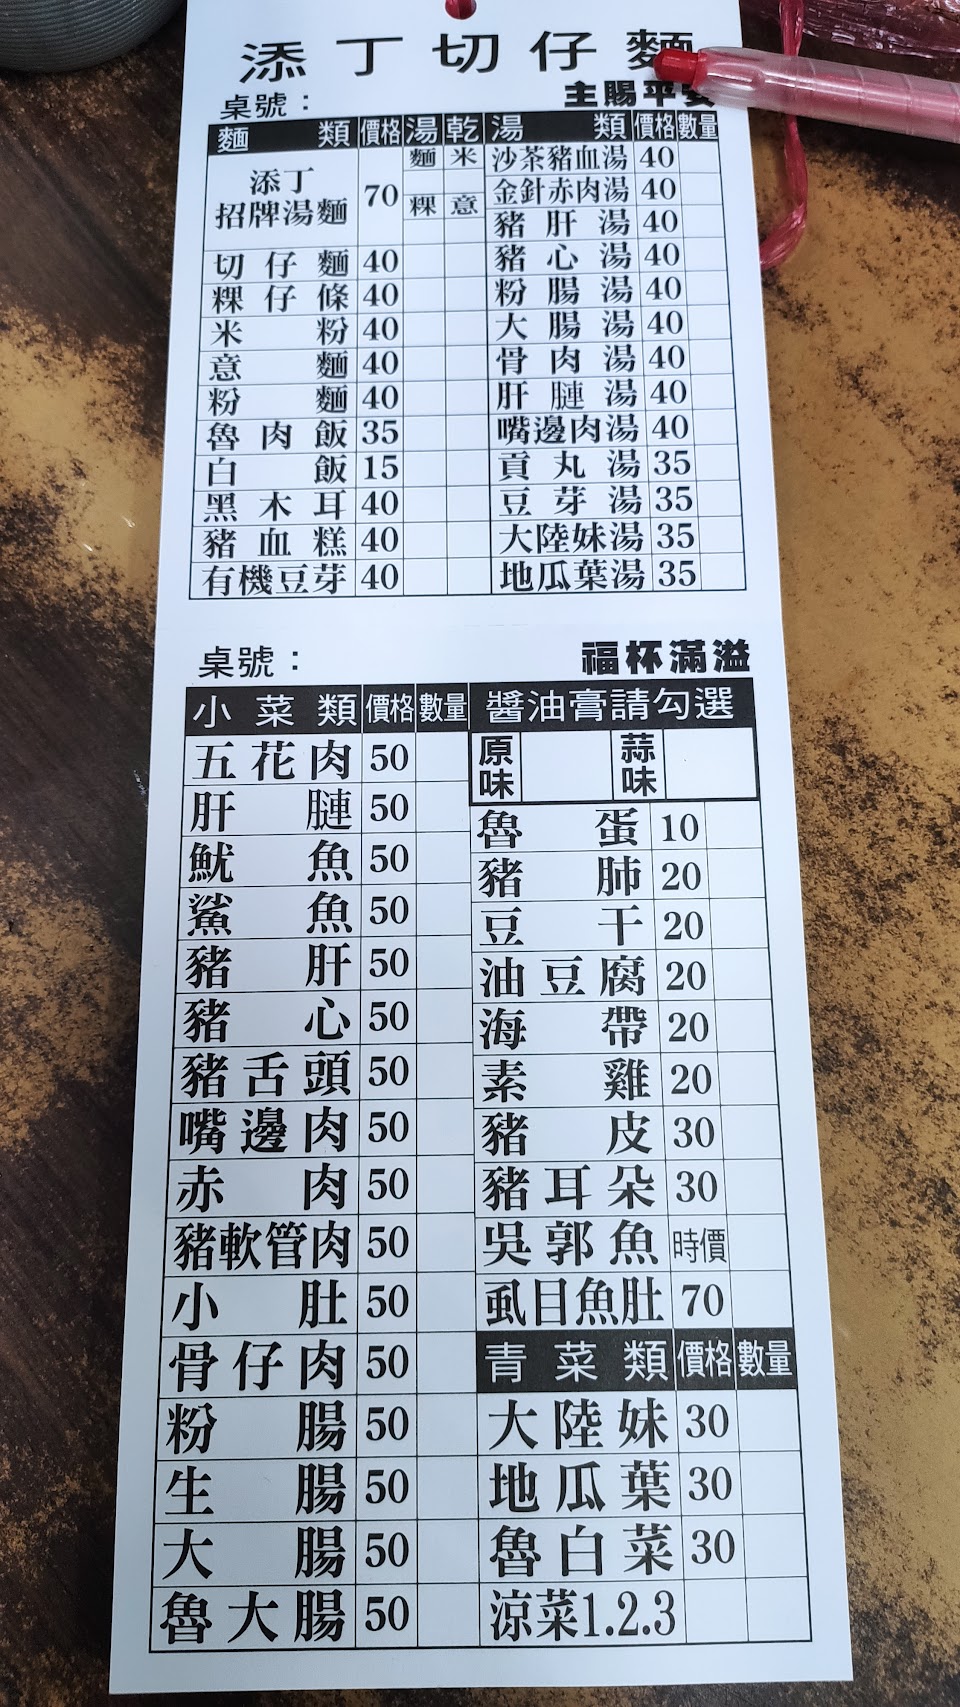 添丁切仔麵
桌號：
主賜平安
麵類 價格 湯 乾 湯類 價格 數量
添丁
招牌湯麵 70
麵 米
粿 意
切仔麵 40
粿仔條 40
米粉 40
意麵 40
粉麵 40
魯肉飯 35
白飯 15
黑木耳 40
豬血糕 40
有機豆芽 40
沙茶豬血湯 40
金針赤肉湯 40
豬肝湯 40
豬心湯 40
粉腸湯 40
大腸湯 40
骨肉湯 40
肝膁湯 40
嘴邊肉湯 40
貢丸湯 35
豆芽湯 35
大陸妹湯 35
地瓜葉湯 35
桌號：
福杯滿溢
小菜類 價格 數量
五花肉 50
肝膁 50
魷魚 50
鯊魚 50
豬肝 50
豬心 50
豬舌頭 50
嘴邊肉 50
赤肉 50
豬軟管肉 50
小肚 50
骨仔肉 50
粉腸 50
生腸 50
大腸 50
魯大腸 50
醬油膏請勾選
原味 蒜味
魯蛋 10
豬肺 20
豆干 20
油豆腐 20
海帶 20
素雞 20
豬皮 30
豬耳朵 30
吳郭魚 時價
虱目魚肚 70
青菜類 價格 數量
大陸妹 30
地瓜葉 30
魯白菜 30
涼菜1.2.3